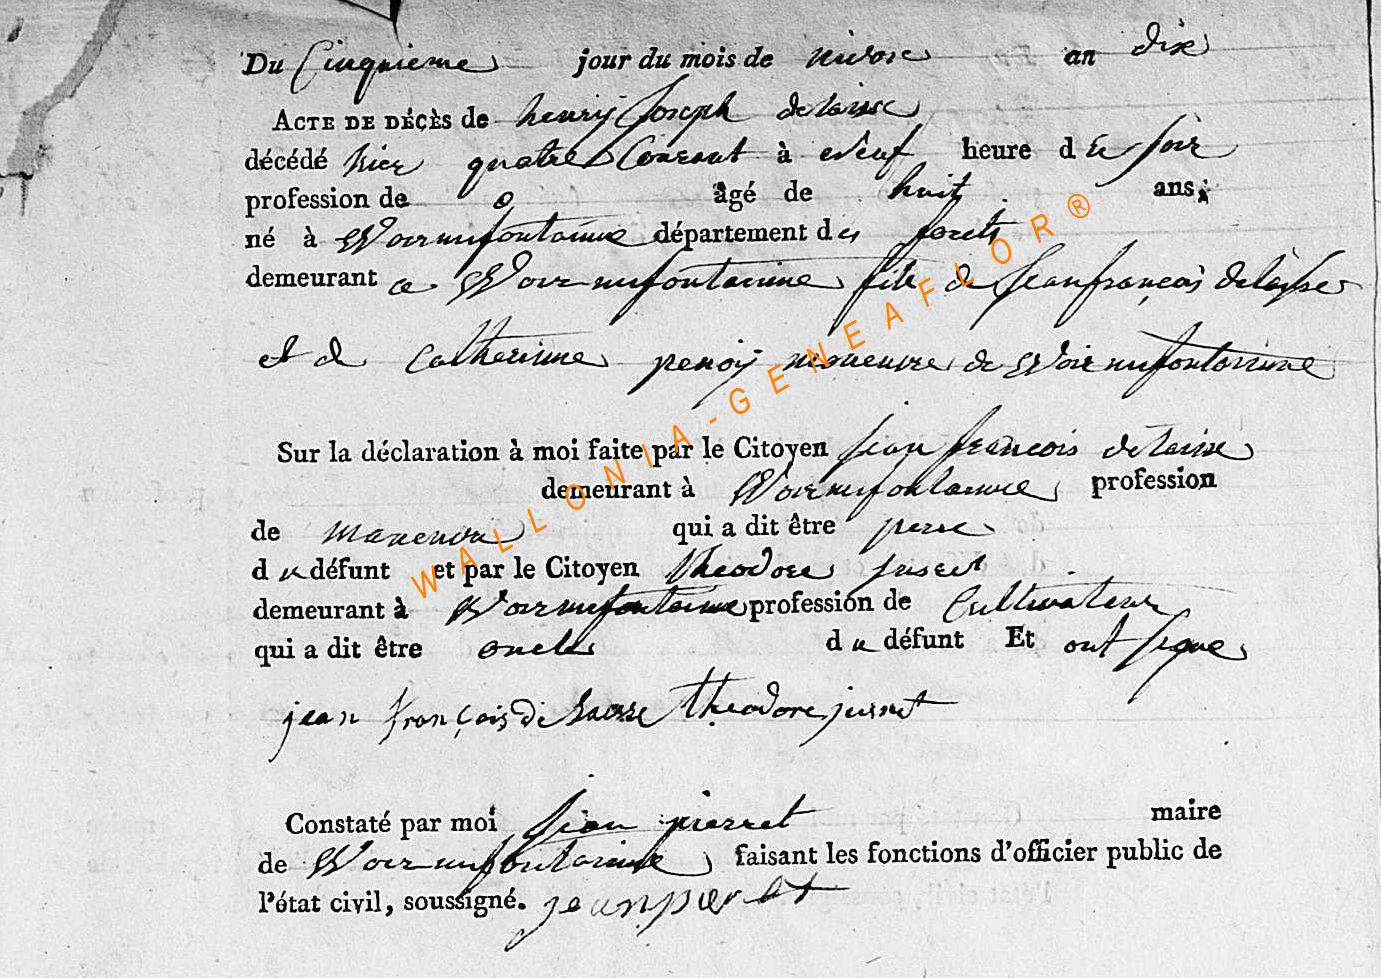 Du Cinquieme jour du mois de nivose an dix
ACTE DE DÉCÈS de henry Joseph delaisse
décédé hier quatre Courant à neuf heure du soir
profession de âgé de huit ans,
né à Woirnufontainne département des forets
demeurant a Woirnufontainne fils de Jean françois delaisse
et de Catherinne penoy maneuvre de Woirnufontainne
Sur la déclaration à moi faite par le Citoyen jean francois delaisse
demeurant à Woirnufontainne profession
de maneuvre qui a dit être perre
du défunt et par le Citoyen theodore jusret
demeurant à Woirnufontainne profession de Cultivateur
qui a dit être oncle du défunt Et ont signe
jean françois theodore jusret
Constaté par moi jean pierret maire
de Woirnufontainne faisant les fonctions d'officier public de
l'état civil, soussigné. jean pierret
WALLONIA-GENEAFLOR®